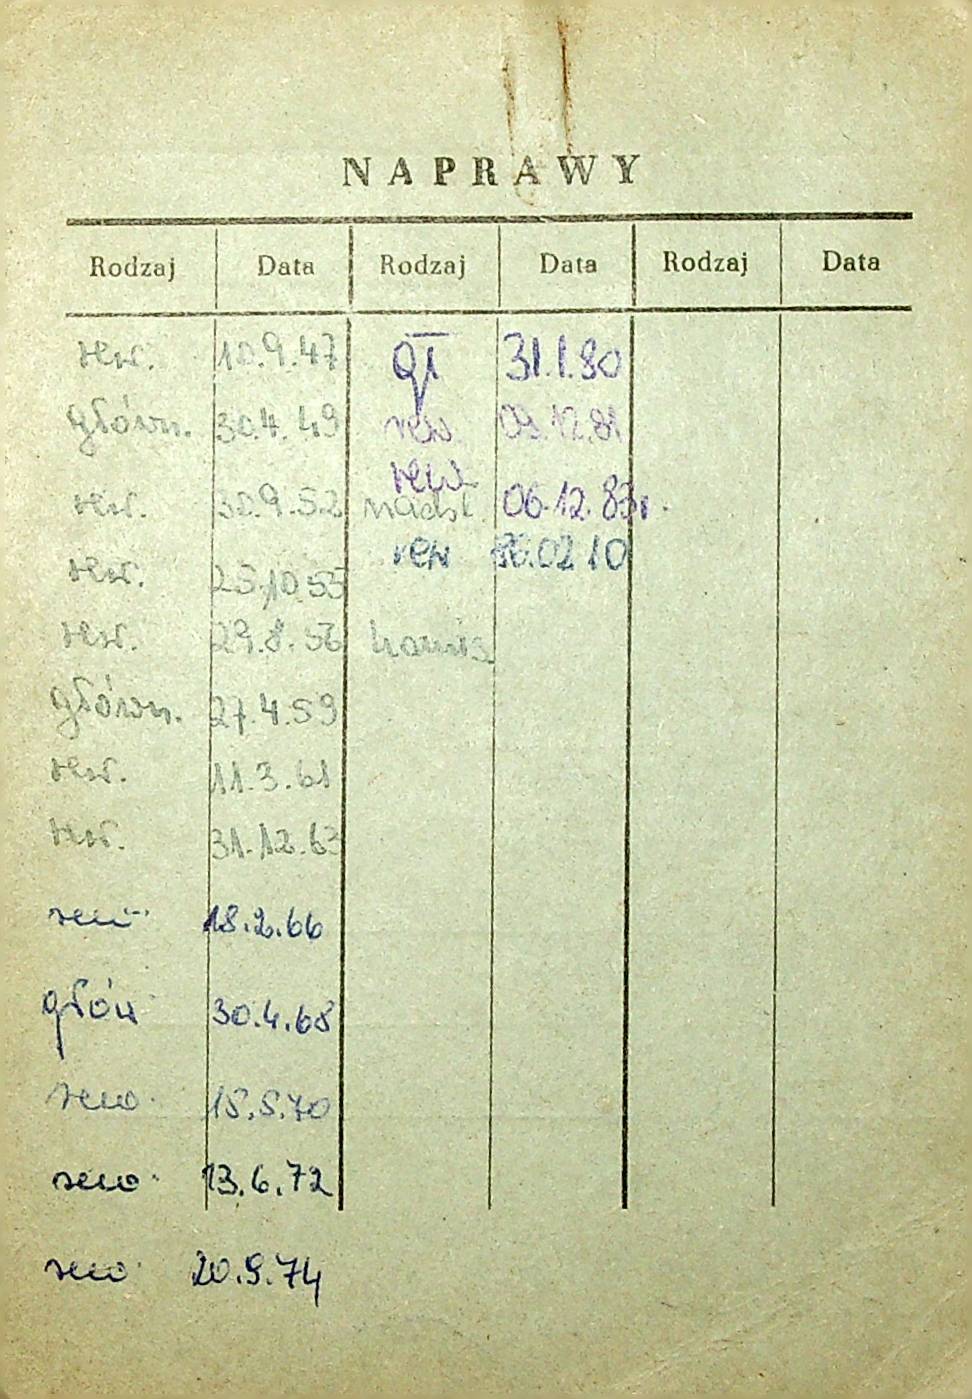 NAPRAWY
Rodzaj Data Rodzaj Data Rodzaj Data
rew. 10.9.47 gł 31.1.80
główn. 30.4.49 rew 09.12.81
rew
rew. 30.9.52 nadst. 06.12.83r.
rew 86.02 10
rew. 25.10.55
rew. 29.8.56
główn. 27.4.59
rew. 11.3.61
rew. 31.12.63
rew 18.2.66
głów 30.4.68
rew. 15.5.70
rew. 13.6.72
rew. 20.9.74